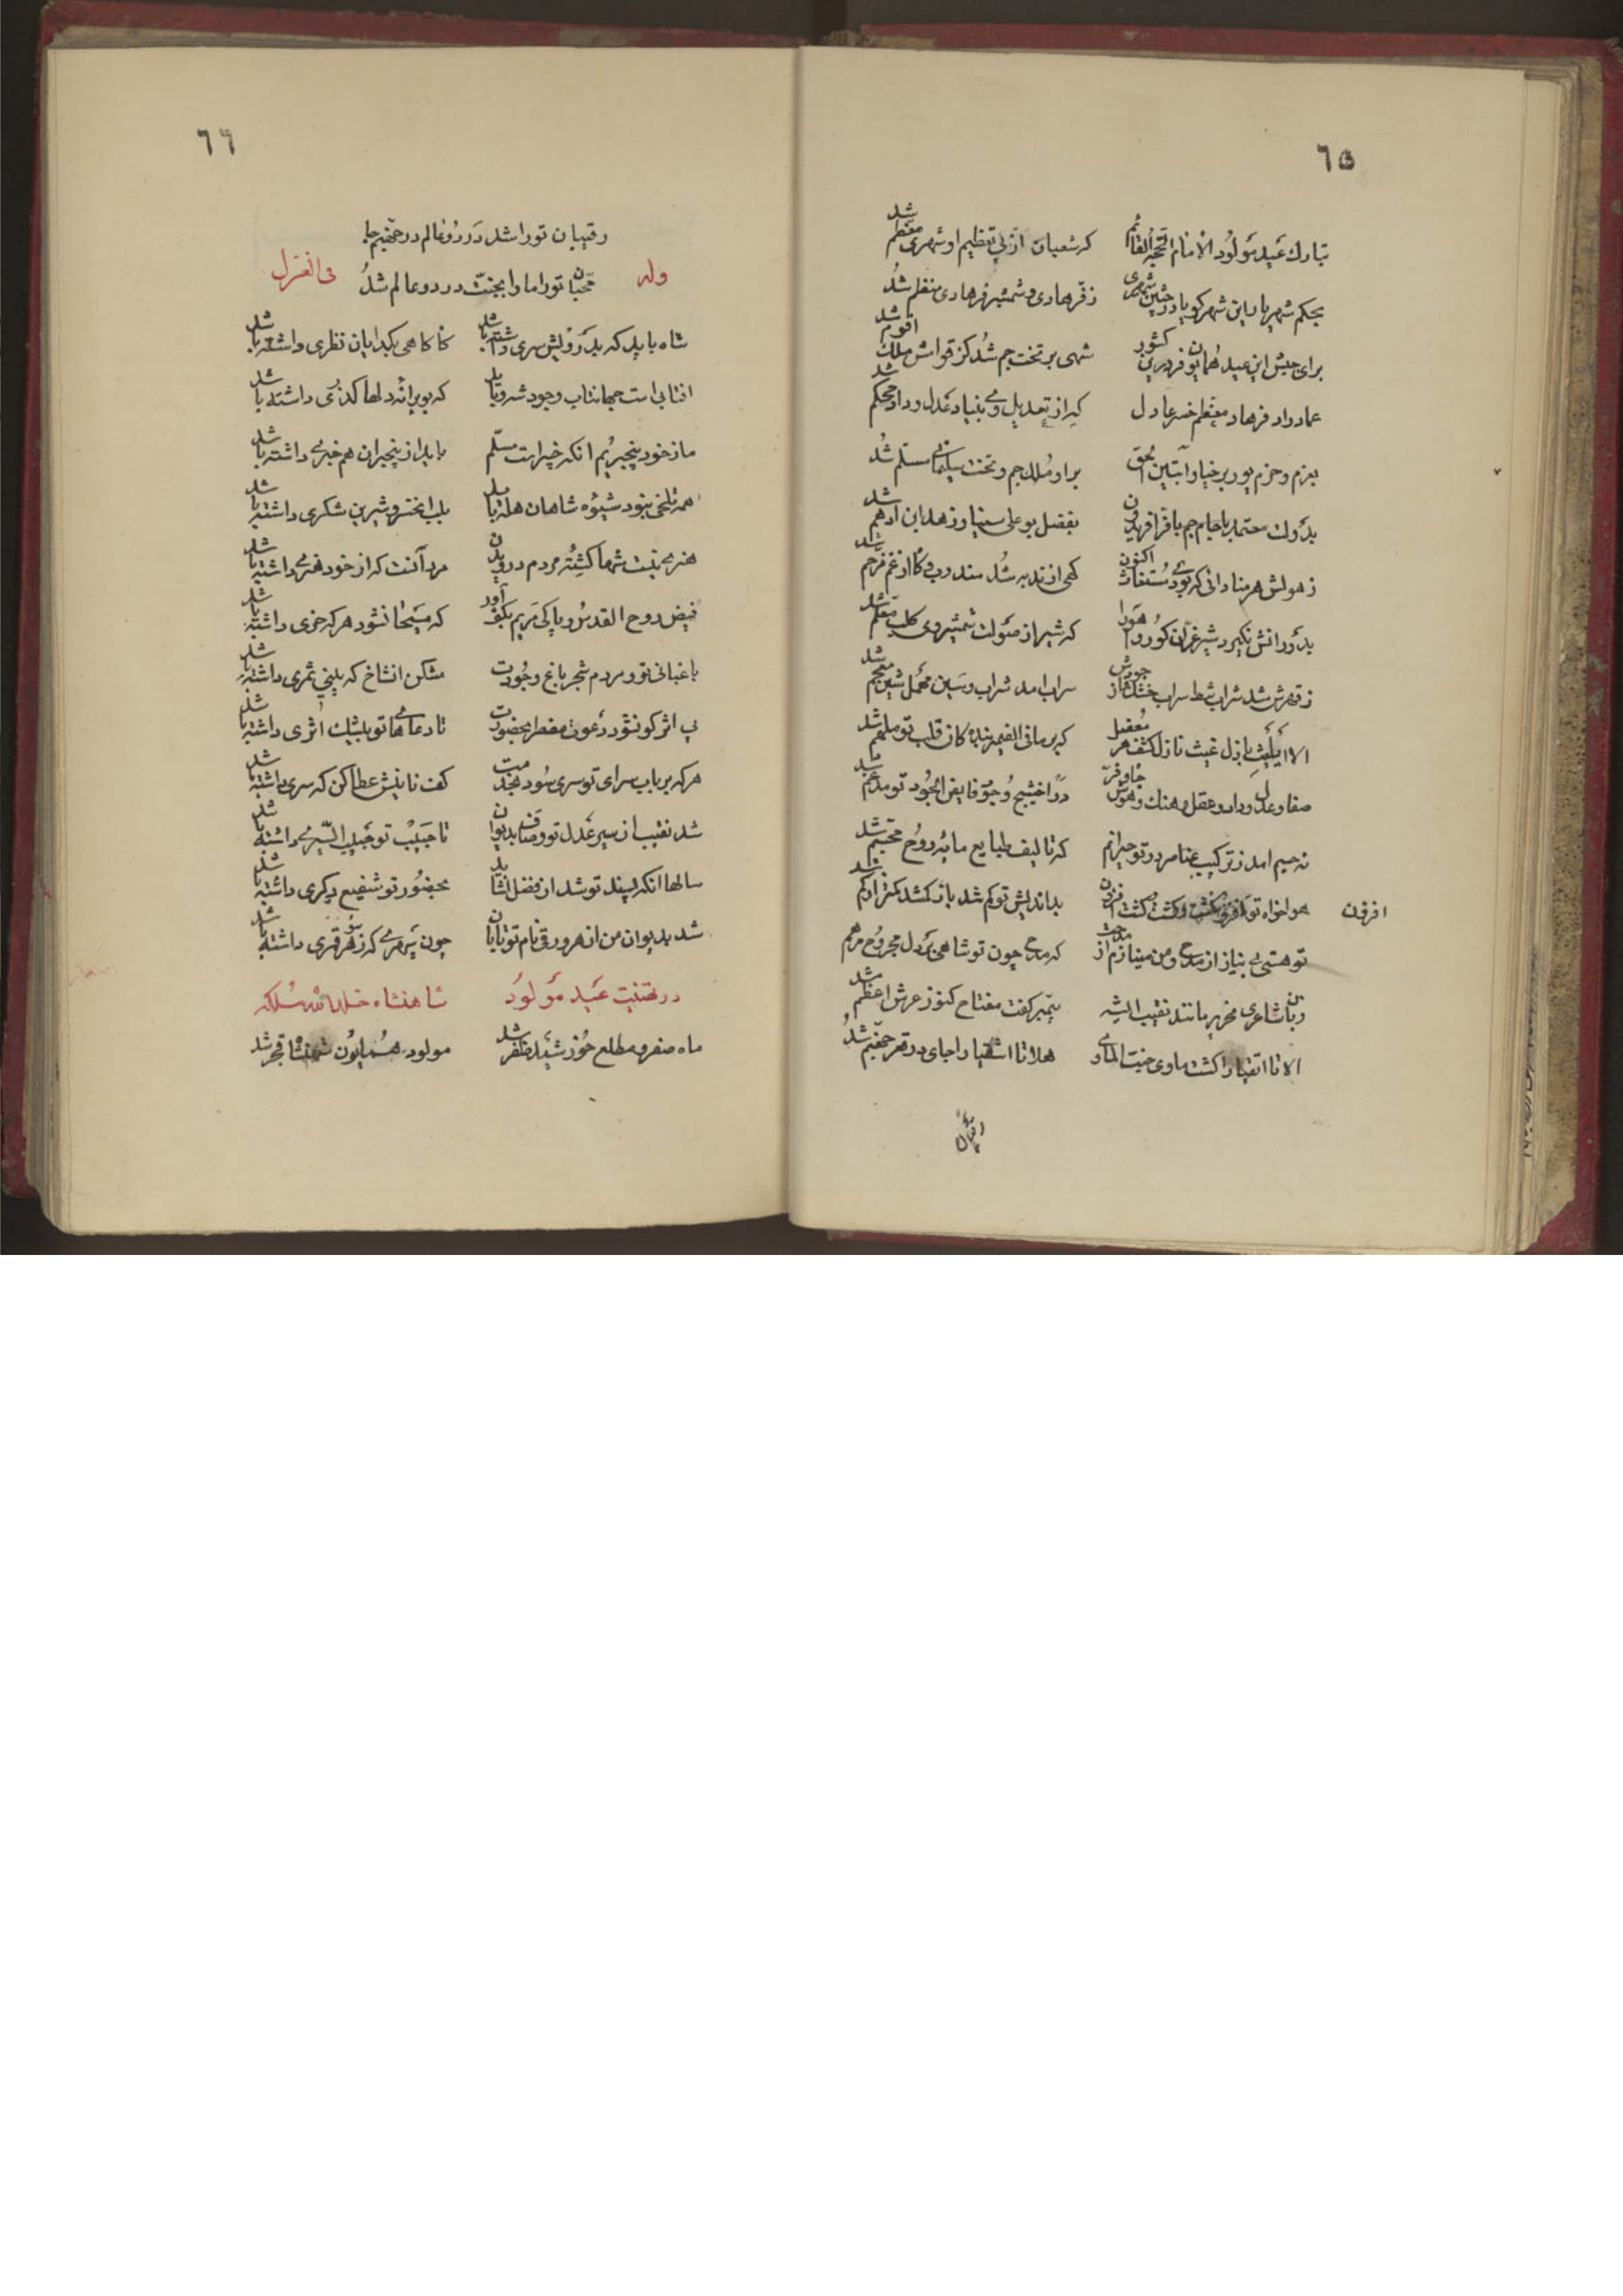 ٦٥
تبارک عید مولود الامام الحجة القائم که شعبان از پی تعظیم او شهری معظم شد
بحکم شهریار این شهر کو یاد جشن شهری ز فر هادی و شمشیر فرهادی منظم شد
برای جیش این عید همایون فر درین کشور شهی بر تخت جم شد کز قوامش ملک اقوم شد
عماد داد فرهاد معظم خسرو عادل که از تعدیل وی بنیاد عدل و داد محکم شد
بعزم و حزم پور برخیا و آبتین الحق بر او ملک جم و تخت سلیمانی مسلم شد
بدولت معتمد با جام جم یا فر افریدون بفضل بوعلی سینا و زهد ابن ادهم شد
ز هولش هر منادانی که بودی مستغاث اکنون
بدورانش نگیرد شیر غران کور و اهو را که شیر از صولت شمشیر وی کلب معلم شد
ز قهرش شد شراب شط سراب خشک از جورش سراب امد شراب و سین مهمل شین معجم شد
الا یا لیث باذل غیث نازل کشف هر معضل که بر مافی الضمیر بنده کان قلب تو ملهم شد
صفا و عدل و داد و عقل و هنک و هوش و جاه و فر
نه جسم امد ز ترکیب عناصر در تو حیرانم که تالیف طبایع مایه روح مجسم شد
هواخواه تو افزون کشت و کشت افزون بداندیش تو کم شد باز کم شد کمتر از کم شد
افزون
تو هستی بی نیاز از مدح و من مینازم از مدحت که مدحی چون تو شاهی بر دل مجروح مرهم شد
زبان شاعری فخریه مانند نقیب الشه پیمبر کفت مفتاح کنوز عرش اعظم شد
الا تا اتقیا را کشت ماوی جنت الماوی هلا تا اشقیا را جای در قعر جهنم شد
رقیبان
٦٦
رقیبان تو را شد در دو عالم در جهنم جا
وله محبان تو را ماوا بجنت در دو عالم شد فی الغزل
شاه باید که بدرویش سری داشته باشد گاه گاهی بگدایان نظری داشته باشد
افتابی است جهانتاب وجود شه و باید که بویرانه دلها گذری داشته باشد
ما ز خود بیخبریم انکه خبیر است مسلم باید از بیخبران هم خبری داشته باشد
همه تلخی نبود شیوه شاهان هله باید بلب انخسرو شیرین شکری داشته باشد
هنری نیست شما کشته مردم دریدن مرد آنست که از خود هنری داشته باشد
فیض روح القدس و پاکی مریم بکف آور که مسیحا نشود هر که خری داشته باشد
باغبانی تو و مردم شجر باغ وجودت مشکن انشاخ که بینی ثمری داشته باشد
بی اثر کو نشود دعوت مضطر بحضورت تا دعاهای تو بیشک اثری داشته باشد
هر که بر باب سرای تو سری سود بخدمت کف نانیش عطا کن که سری داشته باشد
شد نقیب از سیر عدل تو وصاف بدیوان تا حبیب تو حبیب السیری داشته باشد
سالها انکه پسند تو شد از فضل نشاید بحضور تو شفیع دگری داشته باشد
شد بدیوان من از هر ورقی نام تو تابان چون سپهری که ز هر سو قمری داشته باشد
در تهنیت عید مولود شاهنشاه خلد الله ملکه
ماه صفر و مطلع خورشید مظفر شد مولود همایون شهنشاه قجر شد